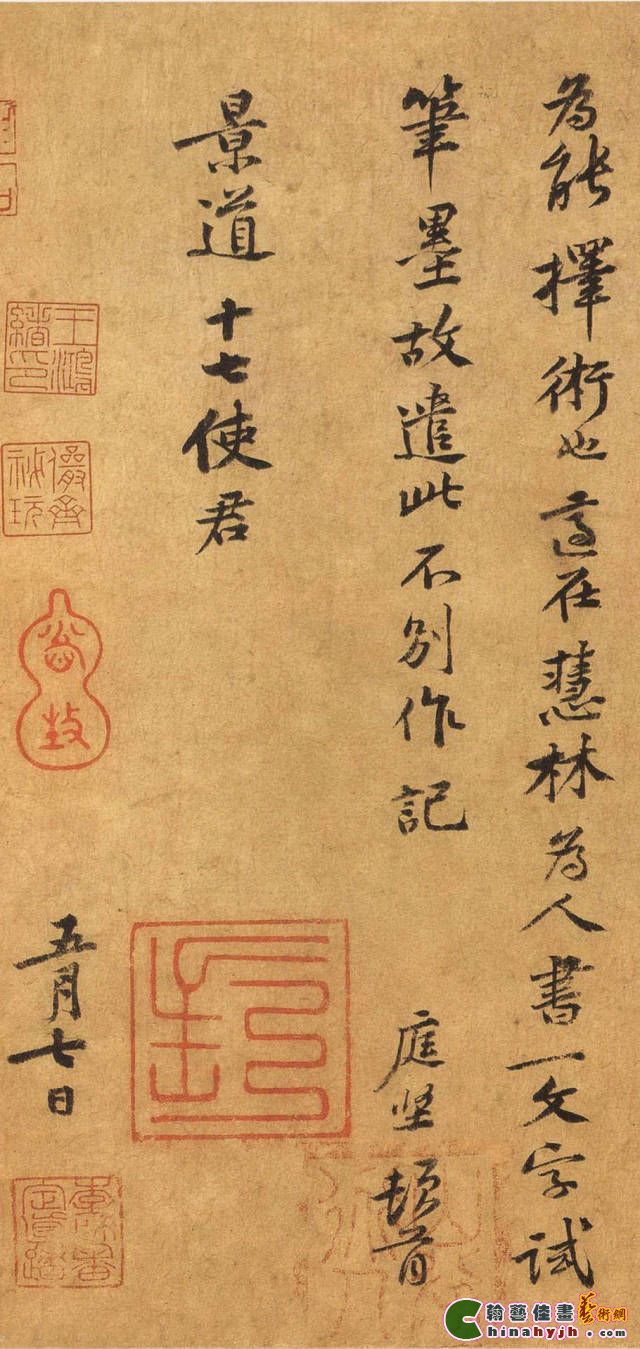 為能擇術也適在慧林為人書一文字試
筆墨故遣此不別作記
庭堅頓首
景道十七使君
五月七日
王鴻緒印
儼齋秘玩
翰藝佳畫藝術網
Chinahyjh.com